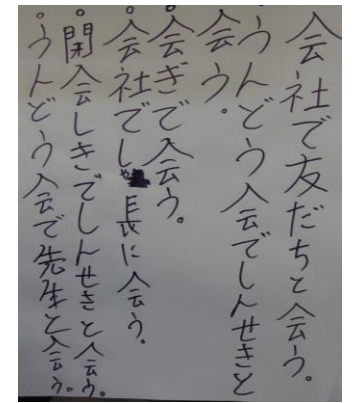 会社で友だちと会う。
。うんどう会でしんせきと
会う。
。会ぎで会う。
。会社でしゃ長に会う。
。開会しきでしんせきと会う。
。うんどう会で先生と会う。